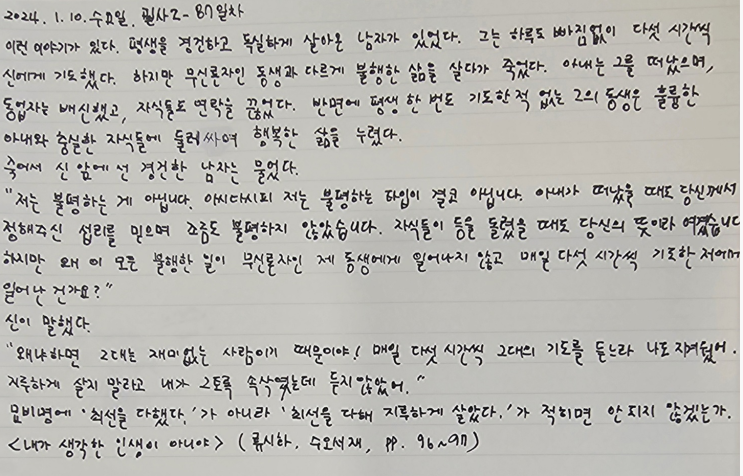 2024. 1. 10. 수요일. 필사2- 87일차
이런 이야기가 있다. 평생을 경건하고 독실하게 살아온 남자가 있었다. 그는 하루도 빠짐없이 다섯 시간씩
신에게 기도했다. 하지만 무신론자인 동생과 다르게 불행한 삶을 살다가 죽었다. 아내는 그를 떠났으며,
동업자는 배신했고, 자식들도 연락을 끊었다. 반면에 평생 한 번도 기도한 적 없는 그의 동생은 훌륭한
아내와 충실한 자식들에 둘러싸여 행복한 삶을 누렸다.
죽어서 신 앞에 선 경건한 남자는 물었다.
"저는 불평하는 게 아닙니다. 아시다시피 저는 불평하는 타입이 결코 아닙니다. 아내가 떠났을 때도 당신께서
정해주신 섭리를 믿으며 조금도 불평하지 않았습니다. 자식들이 등을 돌렸을 때도 당신의 뜻이라 여겼습니다
하지만 왜 이 모든 불행한 일이 무신론자인 제 동생에게 일어나지 않고 매일 다섯 시간씩 기도한 저에게
일어난 건가요?"
신이 말했다.
"왜냐하면 그대는 재미없는 사람이기 때문이야! 매일 다섯 시간씩 그대의 기도를 듣느라 나도 지겨웠어.
지루하게 살지 말라고 내가 그토록 속삭였는데 듣지않았어."
묘비명에 '최선을 다했다.'가 아니라 '최선을 다해 지루하게 살았다.'가 적히면 안 되지 않겠는가.
<내가 생각한 인생이 아니야> (류시화, 수오서재, pp. 96~97)